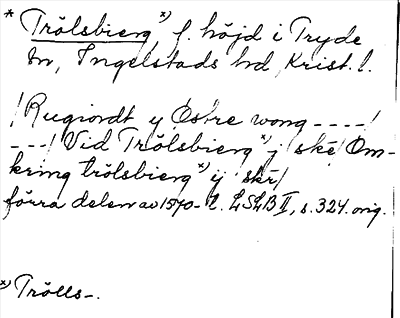 * Trölsbierg x) f. höjd i Tryde
sn, Ingelstads hd Krist. l.
/Rugiordt y Östre wong ----/
---/ Vid Trölsbierg x) j ske/ Om-
kring trölsbierg x) ij skr/
förra delen av 1570-t. LSLB II, s. 324. orig.
x) Trölls-.